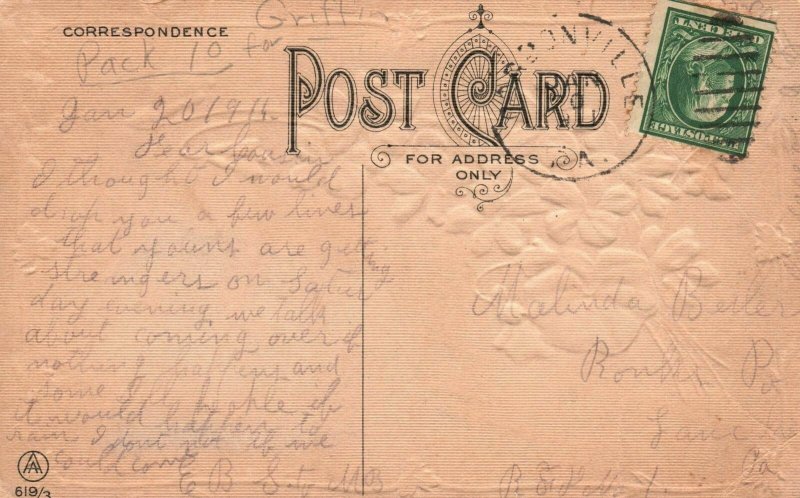 Griffin
CORRESPONDENCE
Pack 10 for
POST CARD
FOR ADDRESS
ONLY
ONVILLE
ONE CENT
POSTAGE
Jan 20 191
Dear Cousin
I thought I would
drop you a few lines
that youns are getting
strengers on Satur
day evening we talk
about coming over if
nothing happens and
some people if
it would happen to
rain I dont no if we
could come
E B S MB
Malinda Beiler
Ronks Po
Lanc
Pa
R
AA
619/3